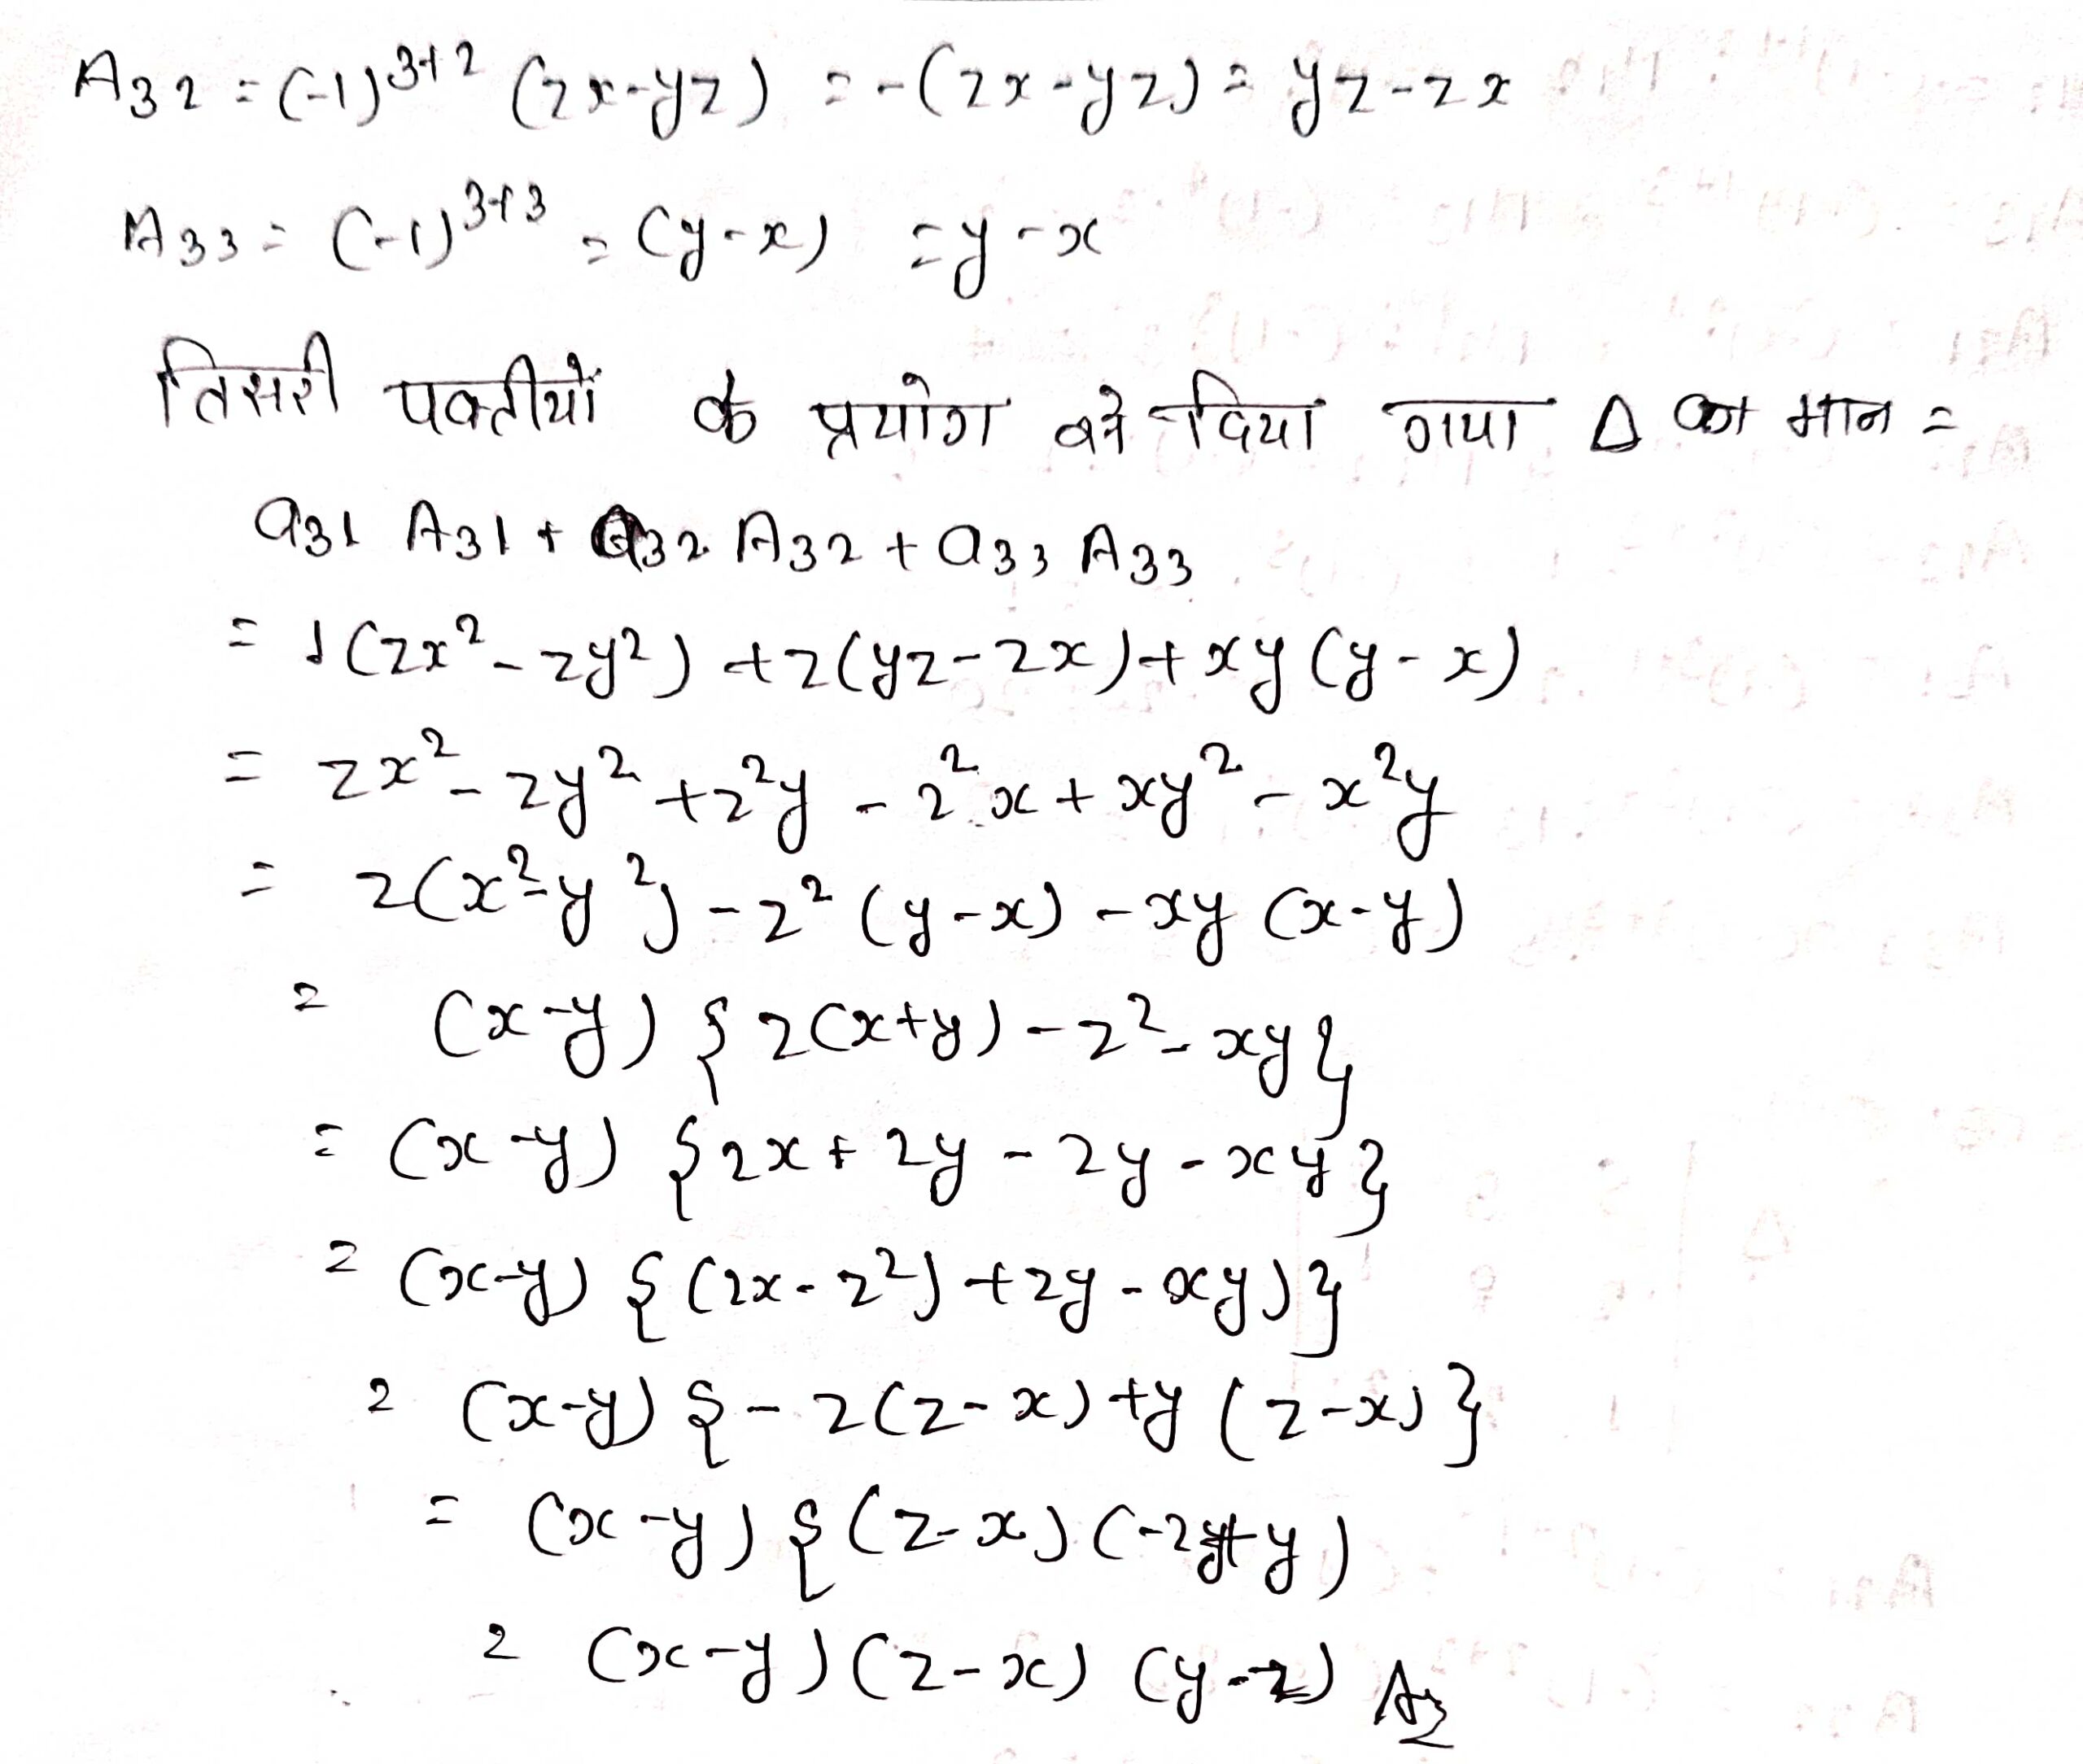 A32 = (-1)^3+2 (zx-yz) = -(zx-yz) = yz-zx
A33 = (-1)^3+3 = (y-x) = y-x
तिसरी पक्तीयों के प्रयोग बने दिया गया Δ का मान =
a31 A31 + a32 A32 + a33 A33
= 1(zx²-zy²) + z(yz-zx) + xy(y-x)
= zx² - zy² + z²y - z²x + xy² - x²y
= z(x²-y²) - z²(y-x) - xy(x-y)
= (x-y) {z(x+y) - z² - xy}
= (x-y) {zx + zy - zy - xy}
= (x-y) {(zx-z²) + zy - xy)}
= (x-y) {-z(z-x) + y(z-x)}
= (x-y) {(z-x) (-zy+y)
= (x-y) (z-x) (y-z) Ans